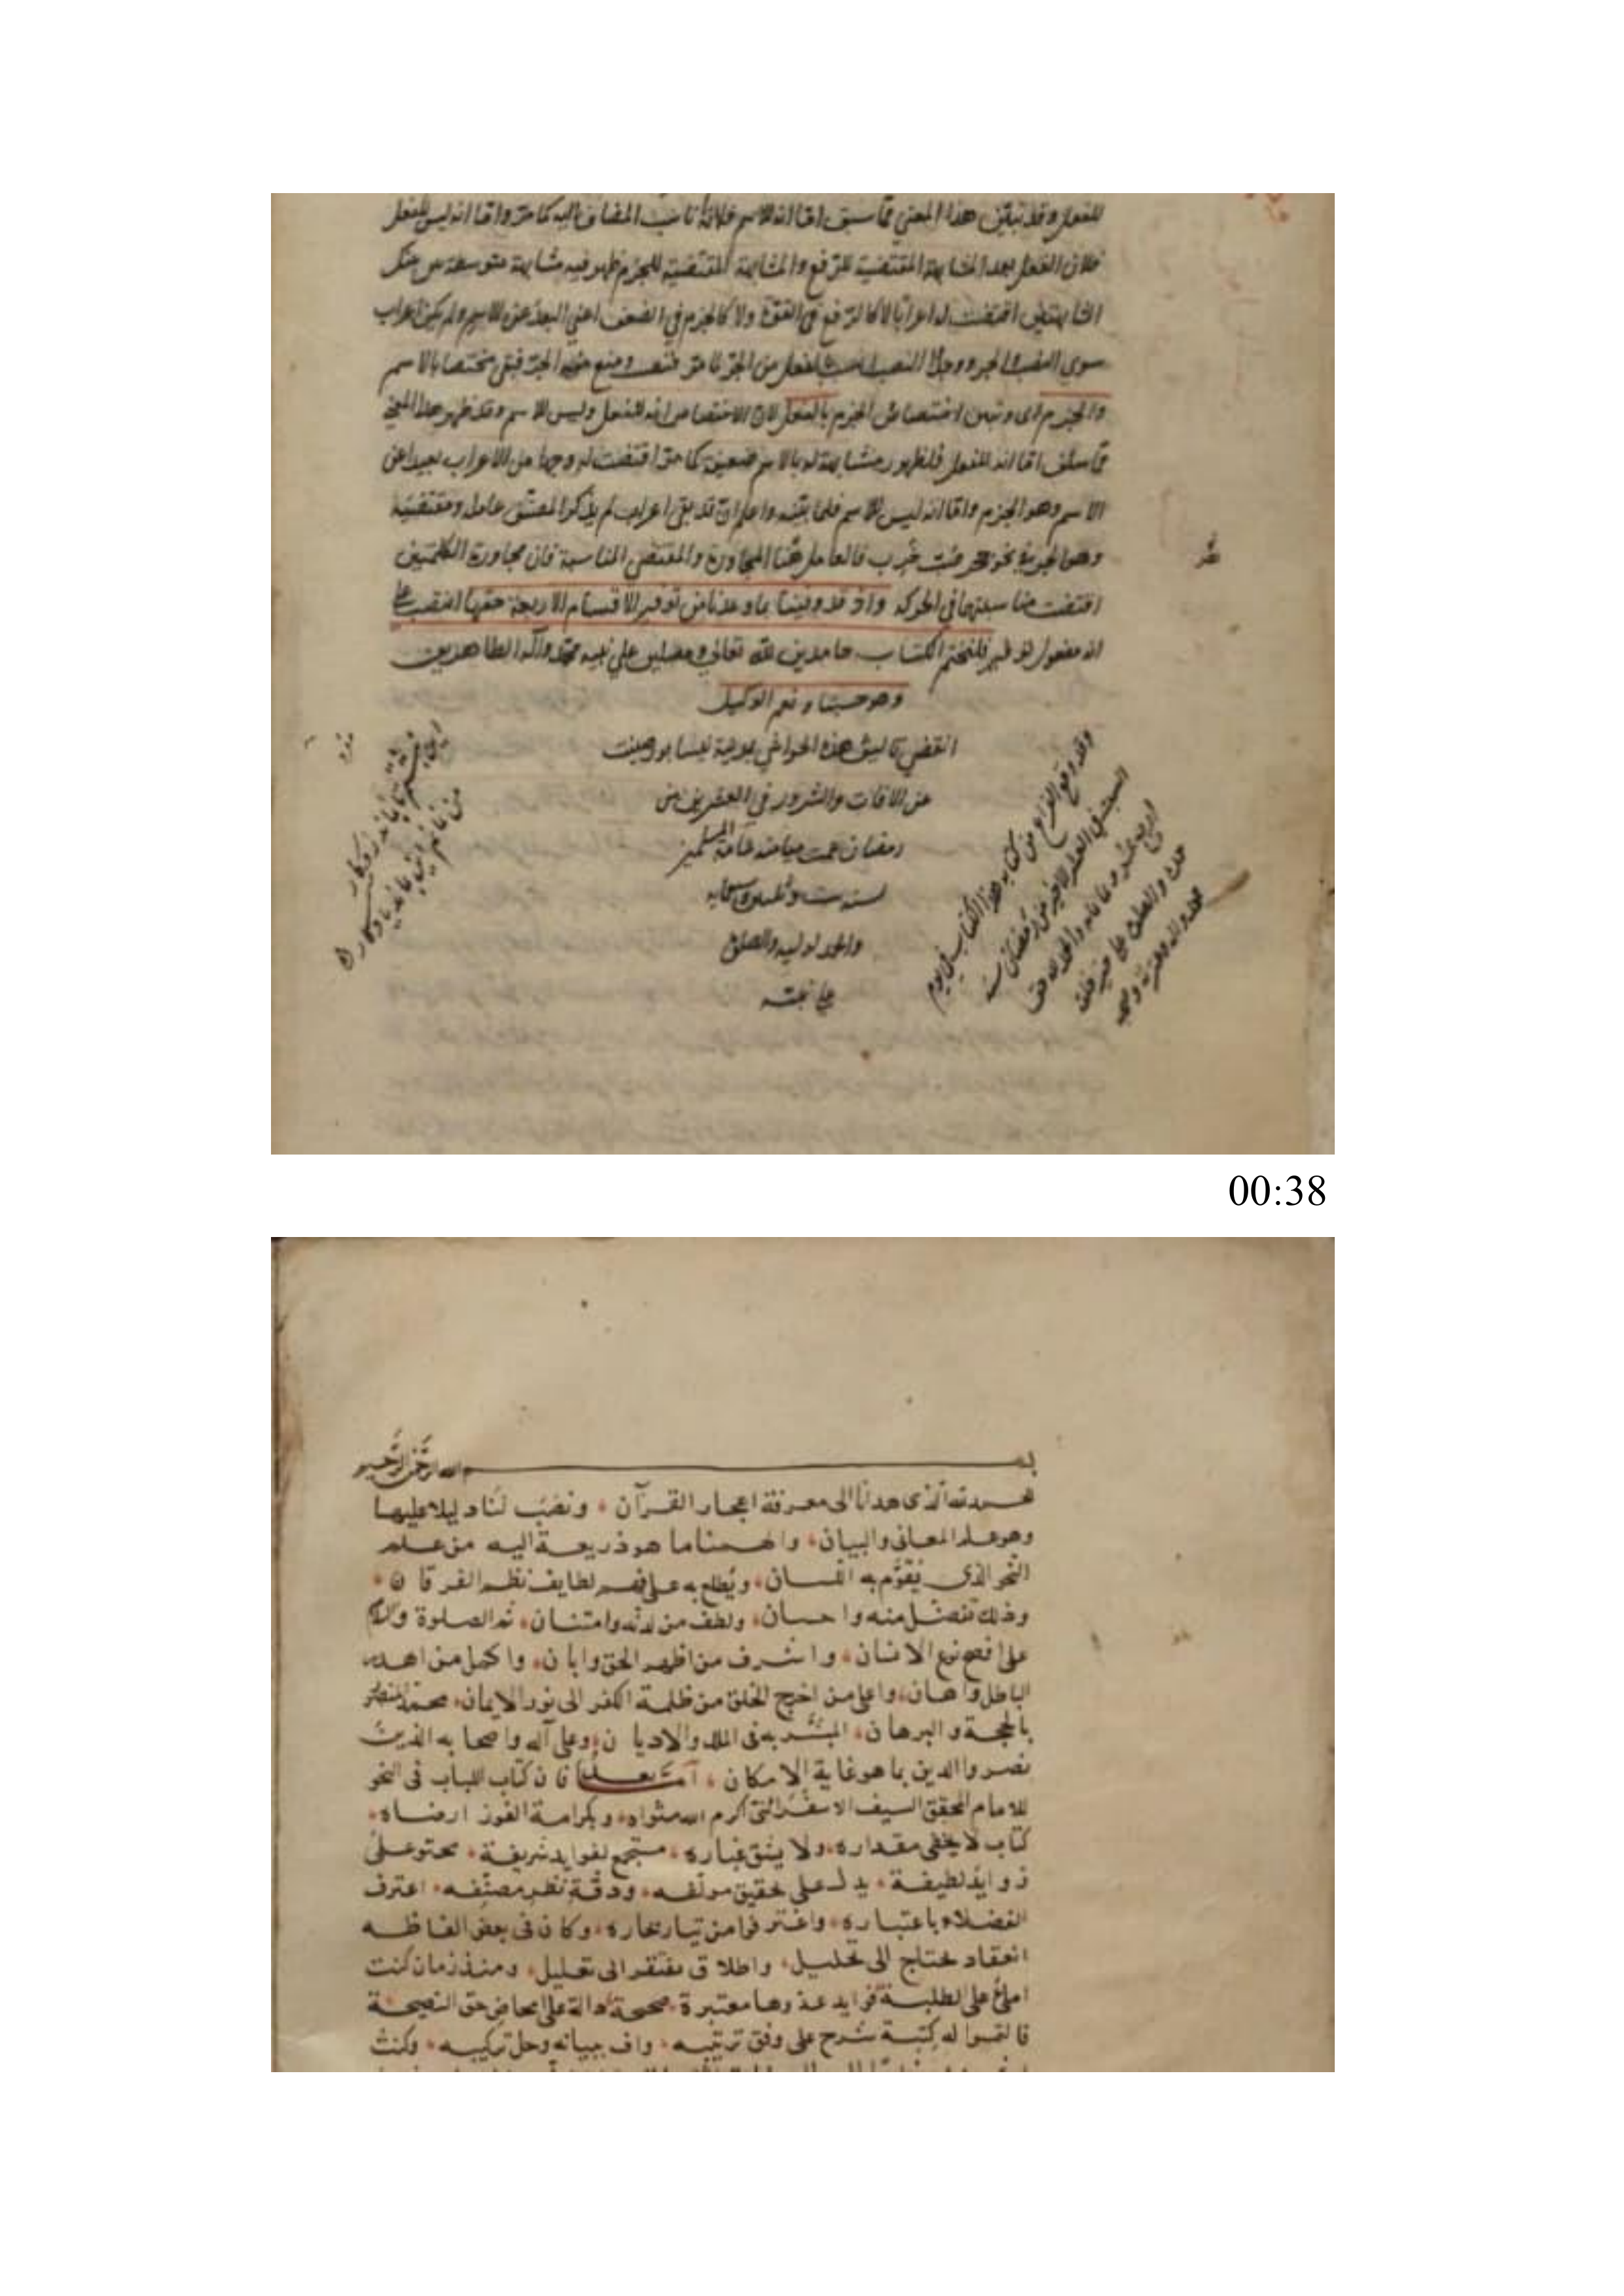 للفعل وقد تبين هذا المعنى مما سبق اما انه للاسم فلانه ناسب المضاف اليه كما مر واما انه ليس للفعل
فلان الفعل بعد المشابهة المقتضية للرفع والمشابهة المقتضية للجزم ظهر فيه مشابهة متوسطة بين
اقتضت له اعرابا لا كالرفع في القوة ولا كالجزم في الضعف اعني البعد عن الاسم ولم يكن اعراب
سوى النصب والجر النصب من الجر كما مر ومنع الجر فبقي مختصا بالاسم
والجزم اي وتبين اختصاص الجزم بالفعل لان الاختصاص انه للفعل وليس للاسم وقد ظهر هذا المعنى
مما سلف اما انه للفعل فلظهور مشابهة له بالاسم ضعيفة كما مر اقتضت له وجها من الاعراب بعيدا عن
الاسم وهو الجزم واما انه ليس للاسم فلما واعلم ان قد بقي اعراب لم يذكر المصنف عامله ومقتضيه
وهو الجر في نحو جحر ضب خرب فالعامل هنا المجاورة والمقتضي المناسبة فان مجاورة الكلمتين
اقتضت مناسبتهما في الحركة واذ قد وفينا بما وعدنا من توفير الاقسام الاربعة حقها انتصب على
انه مفعول فلنختم الكتاب حامدين لله تعالى ومصلين على نبيه محمد وآله الطاهرين
وهو حسبنا ونعم الوكيل
انقضى تأليف هذه الحواشي بمدينة نيسابور صينت
عن الافات والشرور في العشرين من
رمضان عمت ميامنه عامة المسلمين
لسنة ست
والحمد لوليه والصلوة
على نبيه
وقد وقع الفراغ من كتابة هذا الكتاب في يوم
السبت في العشر الاخير من رمضان سنة
اربع عشر وثمانمائة والحمد لله حق
حمده والصلوة على خير خلقه
محمد وآله وعترته وصحبه
اين نبشتم تا بماند روزگار
من نمانم اين بماند يادگار
00:38
بسم الله الرحمن الرحيم
نحمد الله الذى هدانا الى معرفة اعجاز القرآن ونصب لنا دليلا عليها
وهو علم المعانى والبيان والهمنا ما هو ذريعة اليه من علم
النحو الذى يقوم به اللسان ويطلع به على فهم لطايف نظم الفرقان
وذلك تفضل منه واحسان ولطف من لدنه وامتنان ثم الصلوة والسلام
على افصح نوع الانسان واشرف من اظهر الحق وابان واكمل من اهدر
الباطل واهان واعلى من اخرج الخلق من ظلمة الكفر الى نور الايمان محمد المنصور
بالحجة والبرهان المبشر به فى الملل والاديان وعلى آله واصحابه الذين
نصروا الدين بما هو غاية الامكان اما بعد فان كتاب اللباب فى النحو
للامام المحقق السيف الاسفرائنى اكرم الله مثواه وبكرامة الفوز ارضاه
كتاب لا يخفى مقداره ولا يشق غباره مستجمع لفوايد شريفة محتو على
زوايد لطيفة يدل على تحقيق مولفه ودقة نظر مصنفه اعترف
الفضلاء باعتباره واغترفوا من تيار بحاره وكان فى بعض الفاظه
انعقاد يحتاج الى تحليل واطلاق يفتقر الى تعليل ومنذ زمان كنت
املى على الطلبة فرايد عدوها معتبرة صحيحة دالة على امحاض حق النصيحة
فالتمسوا له كتبة شرح على وفق ترتيبه واف ببيانه وحل تركيبه وكنت